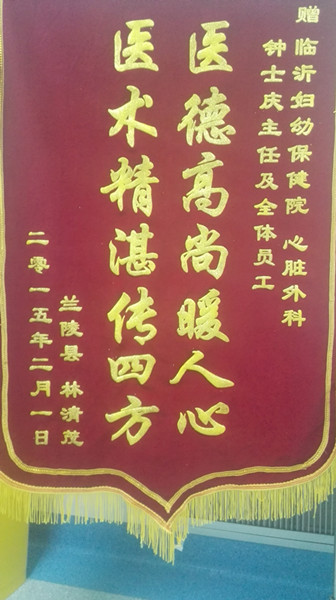 赠 临沂妇幼保健院 心脏外科
钟士庆主任及全体员工
医德高尚暖人心
医术精湛传四方
兰陵县 林清茂
二零一五年二月一日